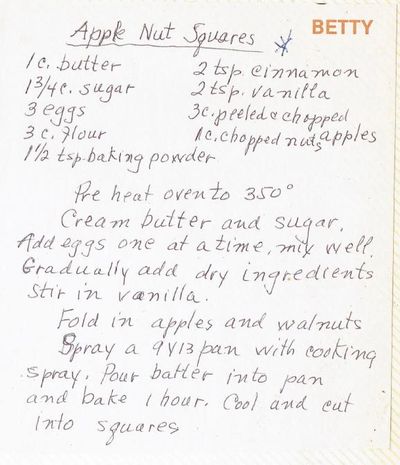 Apple Nut Squares
BETTY
1 c. butter
1 3/4 c. sugar
3 eggs
3 c. flour
1 1/2 tsp. baking powder
2 tsp. cinnamon
2 tsp. vanilla
3c. peeled & chopped
apples
1c. chopped nuts
Pre heat oven to 350°
Cream butter and sugar.
Add eggs one at a time, mix well.
Gradually add dry ingredients
stir in vanilla.
Fold in apples and walnuts
Spray a 9x13 pan with cooking
spray. Pour batter into pan
and bake 1 hour. Cool and cut
into squares